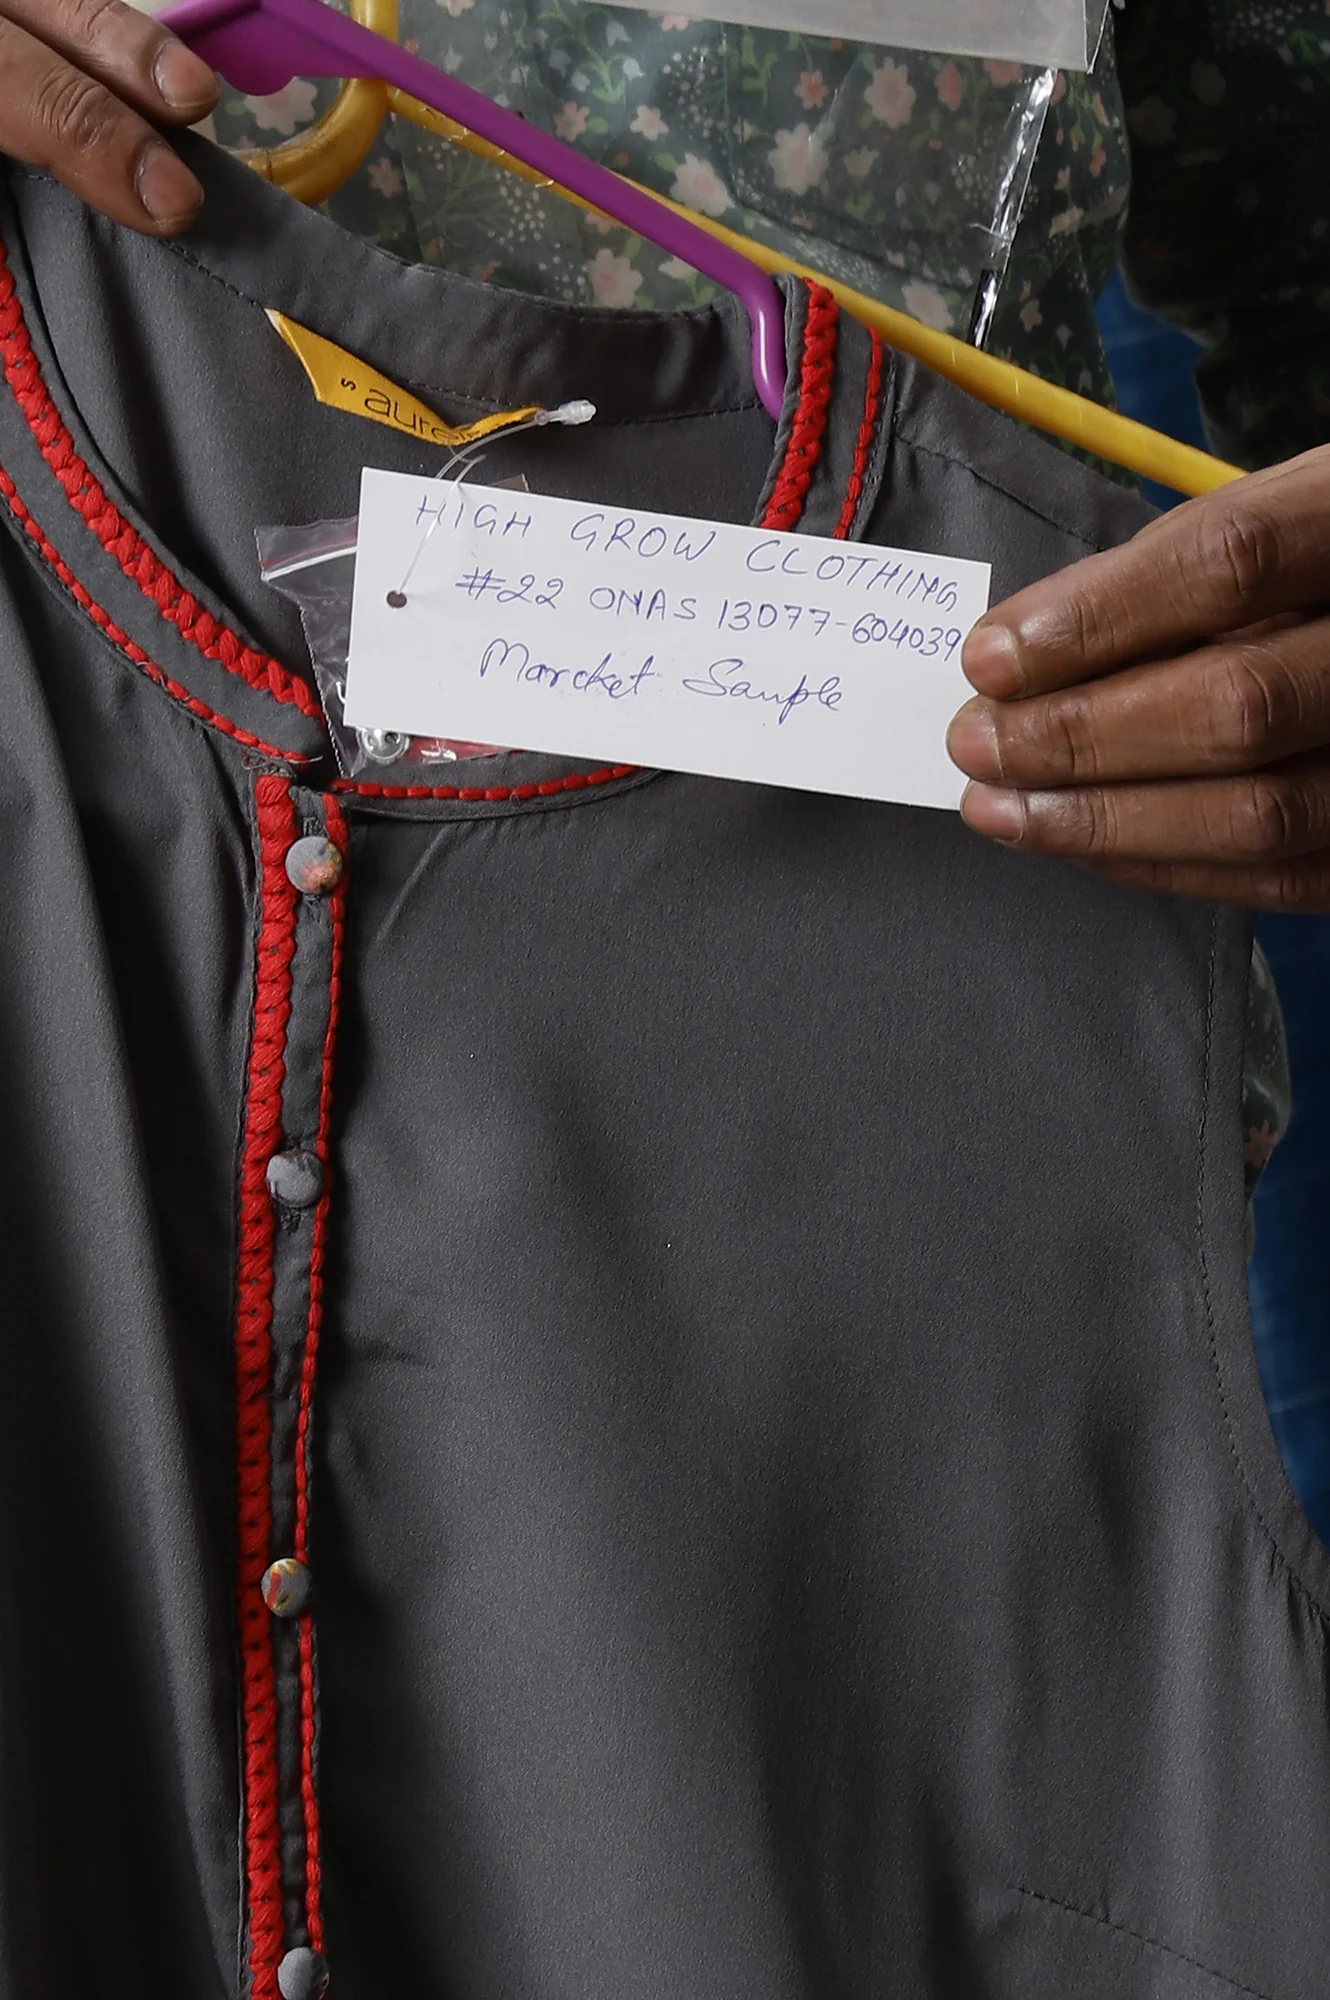 S
HIGH GROW CLOTHING
#22 ONAS 13077-604039
Marcket Sample